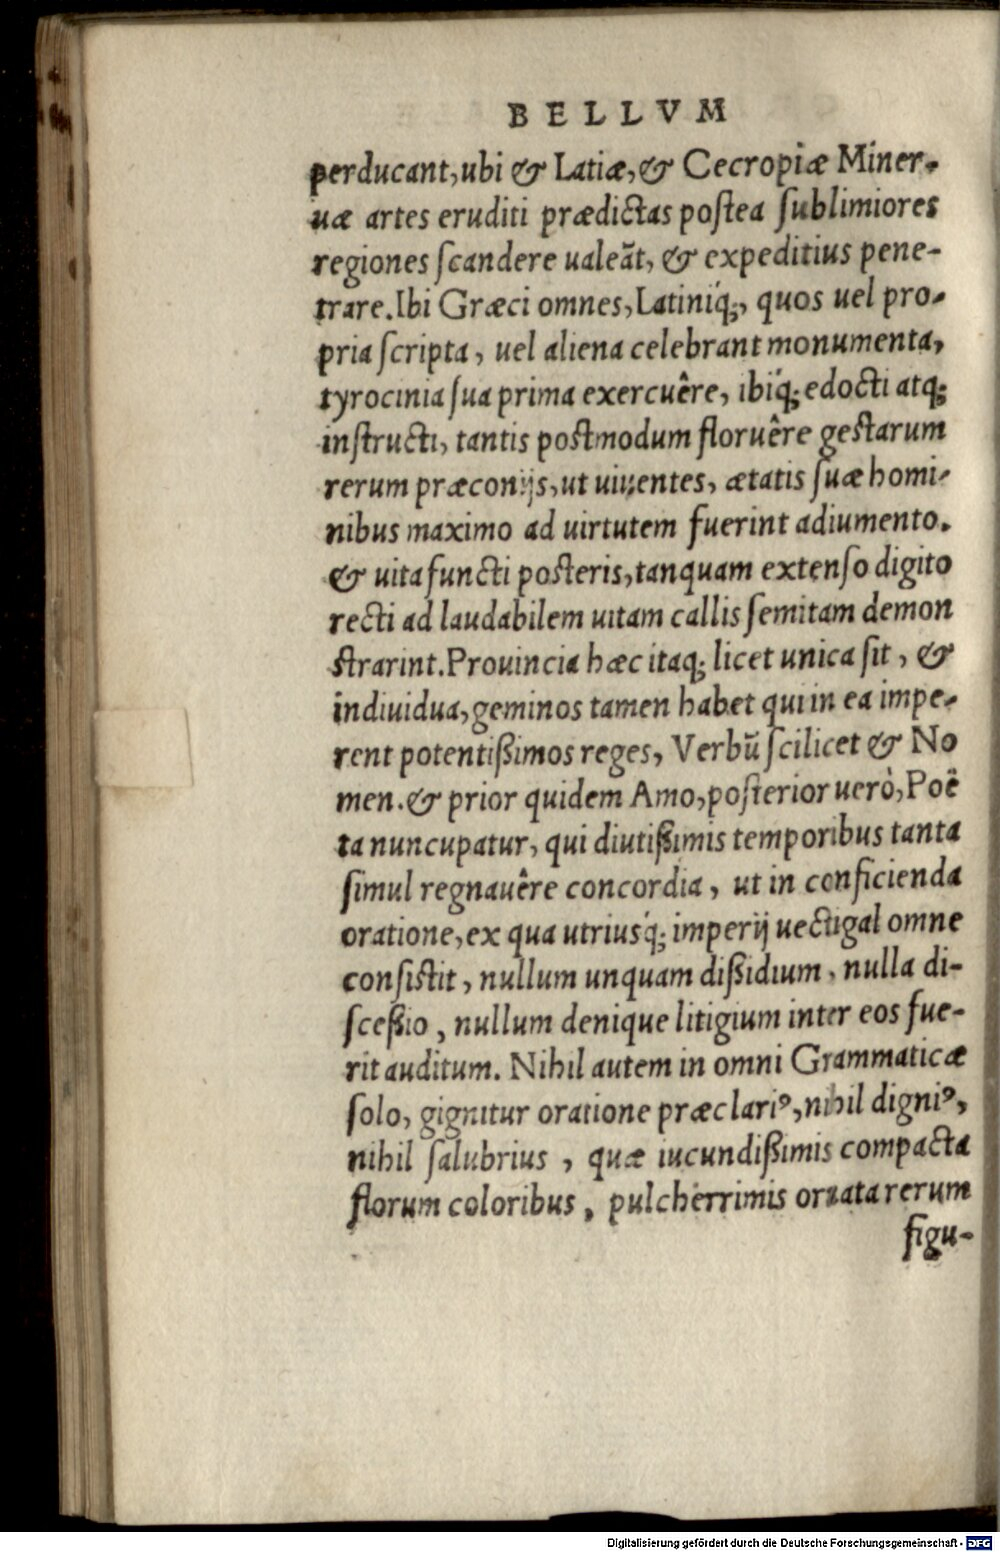 BELLVM
perducant, ubi & Latiæ, & Cecropiæ Miner-
uæ artes eruditi prædictas postea sublimiores
regiones scandere ualeãt, & expeditius pene-
trare. Ibi Græci omnes, Latiniq́;, quos uel pro-
pria scripta, uel aliena celebrant monumenta,
tyrocinia sua prima exercuêre, ibiq́; edocti atq;
instructi, tantis postmodum floruêre gestarum
rerum præconijs, ut uiuentes, ætatis suæ homi-
nibus maximo ad uirtutem fuerint adiumento.
& uita functi posteris, tanquam extenso digito
recti ad laudabilem uitam callis semitam demon
strarint. Prouincia hæc itaq; licet unica sit, &
indiuidua, geminos tamen habet qui in ea impe-
rent potentißimos reges, Verbũ scilicet & No
men. & prior quidem Amo, posterior uerò, Poë
ta nuncupatur, qui diutißimis temporibus tanta
simul regnauêre concordia, ut in conficienda
oratione, ex qua utriusq́; imperij uectigal omne
consistit, nullum unquam dißidium, nulla di-
sceßio, nullum denique litigium inter eos fue-
rit auditum. Nihil autem in omni Grammaticæ
solo, gignitur oratione præclariꝰ, nihil digniꝰ,
nihil salubrius, quæ iucundißimis compacta
florum coloribus, pulcherrimis ornata rerum
figu-
Digitalisierung gefördert durch die Deutsche Forschungsgemeinschaft - DFG